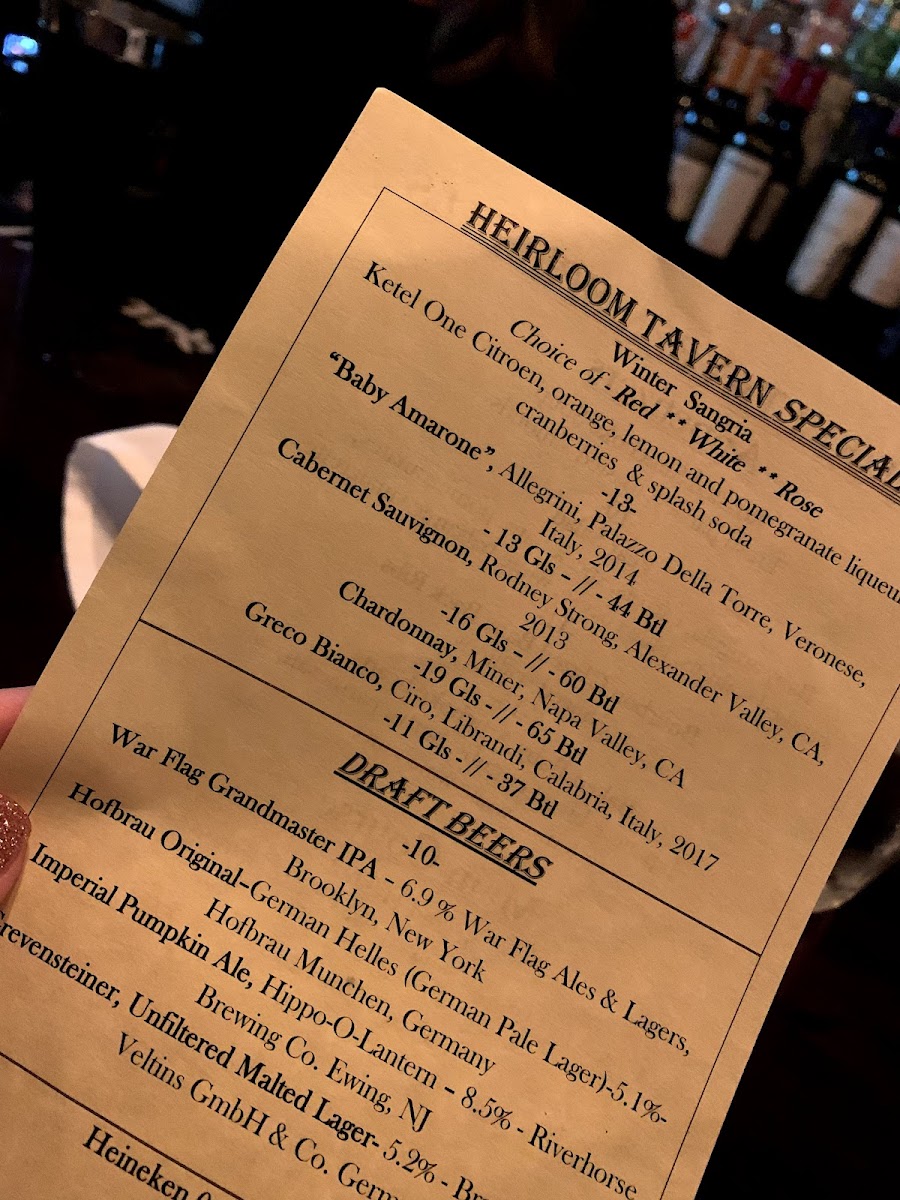 HEIRLOOM TAVERN SPECIAL
Winter Sangria
Choice of - Red ** White ** Rose
Ketel One Citroen, orange, lemon and pomegranate liqueur
cranberries & splash soda
-13-
"Baby Amarone", Allegrini, Palazzo Della Torre, Veronese,
Italy, 2014
- 13 Gls - // - 44 Btl
Cabernet Sauvignon, Rodney Strong, Alexander Valley, CA,
2013
-16 Gls - // - 60 Btl
Chardonnay, Miner, Napa Valley, CA
-19 Gls - // - 65 Btl
Greco Bianco, Ciro, Librandi, Calabria, Italy, 2017
-11 Gls - // - 37 Btl
DRAFT BEERS
-10-
War Flag Grandmaster IPA - 6.9 % War Flag Ales & Lagers,
Brooklyn, New York
Hofbrau Original-German Helles (German Pale Lager)-5.1%-
Hofbrau Munchen, Germany
Imperial Pumpkin Ale, Hippo-O-Lantern - 8.5% - Riverhorse
Brewing Co. Ewing, NJ
revensteiner, Unfiltered Malted Lager- 5.2% - Br
Veltins GmbH & Co. Germ
Heineken